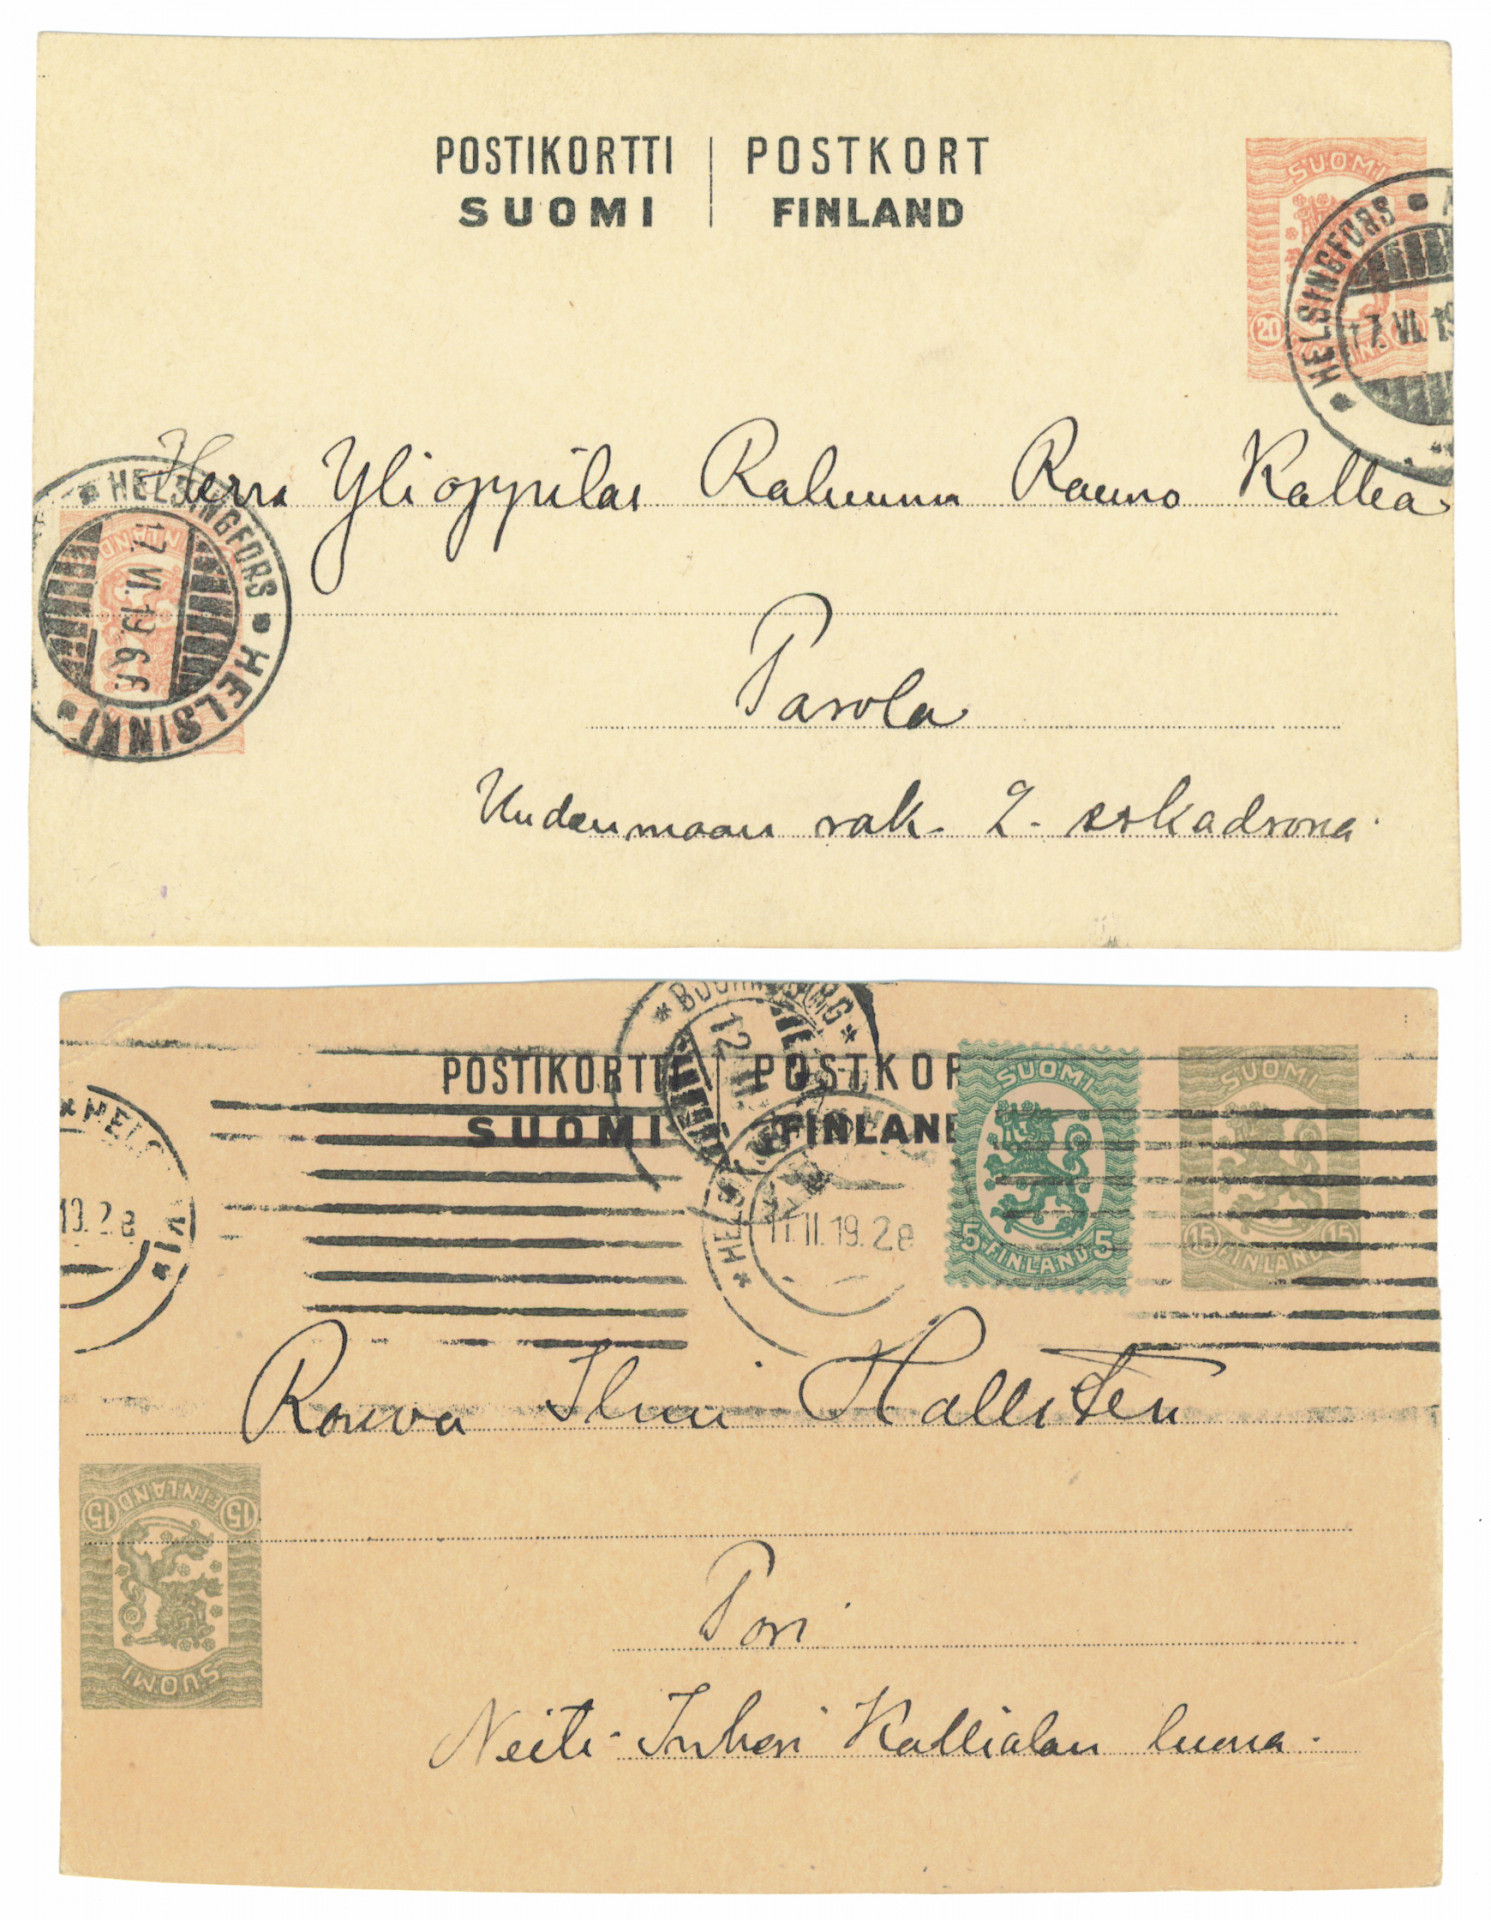 POSTIKORTTI | POSTKORT
SUOMI | FINLAND
SUOMI
20
HELSINGFORS
17. VI. 19
Herra Ylioppilas Rauno Kallia
HELSINGFORS HELSINKI
17. VI. 19. 6 F.
FINLAND
Parola
Uudenmaan rak. 2. eskadrona.
BJÖRNEBORG
12. II.
POSTIKORTTI | POSTKOR
SUOMI | FINLAN
SUOMI
5 FINLAND 5
SUOMI
15 FINLAND 15
19. 2 8
11. II. 19. 2 8
Rouva Ilmi Hallsten
15 FINLAND 15
SUOMI
Pori
Neiti Inkeri Kallialan luona.